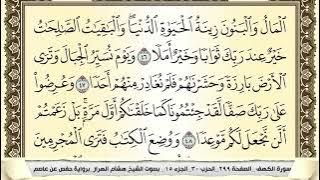 ٱلْمَالُ وَٱلْبَنُونَ زِينَةُ ٱلْحَيَوٰةِ ٱلدُّنْيَا ۖ وَٱلْبَٰقِيَٰتُ ٱلصَّٰلِحَٰتُ
خَيْرٌ عِندَ رَبِّكَ ثَوَابًا وَخَيْرٌ أَمَلًا ٤٦ وَيَوْمَ نُسَيِّرُ ٱلْجِبَالَ وَتَرَى
ٱلْأَرْضَ بَارِزَةً وَحَشَرْنَٰهُمْ فَلَمْ نُغَادِرْ مِنْهُمْ أَحَدًا ٤٧ وَعُرِضُوا۟
عَلَىٰ رَبِّكَ صَفًّا لَّقَدْ جِئْتُمُونَا كَمَا خَلَقْنَٰكُمْ أَوَّلَ مَرَّةٍۭ ۚ بَلْ زَعَمْتُمْ
أَلَّن نَّجْعَلَ لَكُم مَّوْعِدًا ٤٨ وَوُضِعَ ٱلْكِتَٰبُ فَتَرَى ٱلْمُجْرِمِينَ
سورة الكهف . الصفحة ٢٩٩ . الحزب ٣٠ . الجزء ١٥ . بصوت الشيخ هشام الهراز برواية حفص عن عاصم